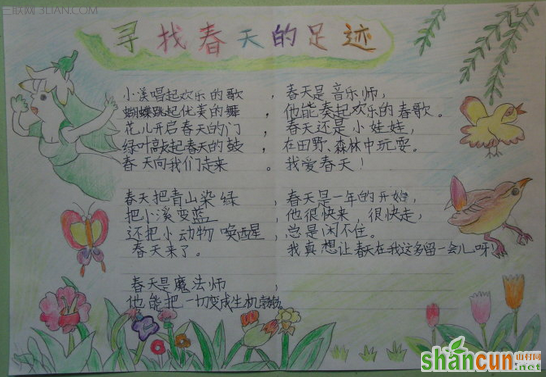 寻找春天的足迹
小溪唱起欢乐的歌，
蝴蝶跳起优美的舞，
花儿开启春天的门，
绿叶敲起春天的鼓，
春天向我们走来。
春天把青山染绿，
把小溪变蓝，
还把小动物唤醒，
春天来了。
春天是魔法师，
他能把一切变成生机勃勃。
春天是音乐师，
他能奏起欢乐的春歌。
春天还是小娃娃，
在田野、森林中玩耍。
我爱春天！
春天是一年的开始，
他很快来，很快走，
总是闲不住。
我真想让春天在我这多留一会儿呀！
shancun
.net